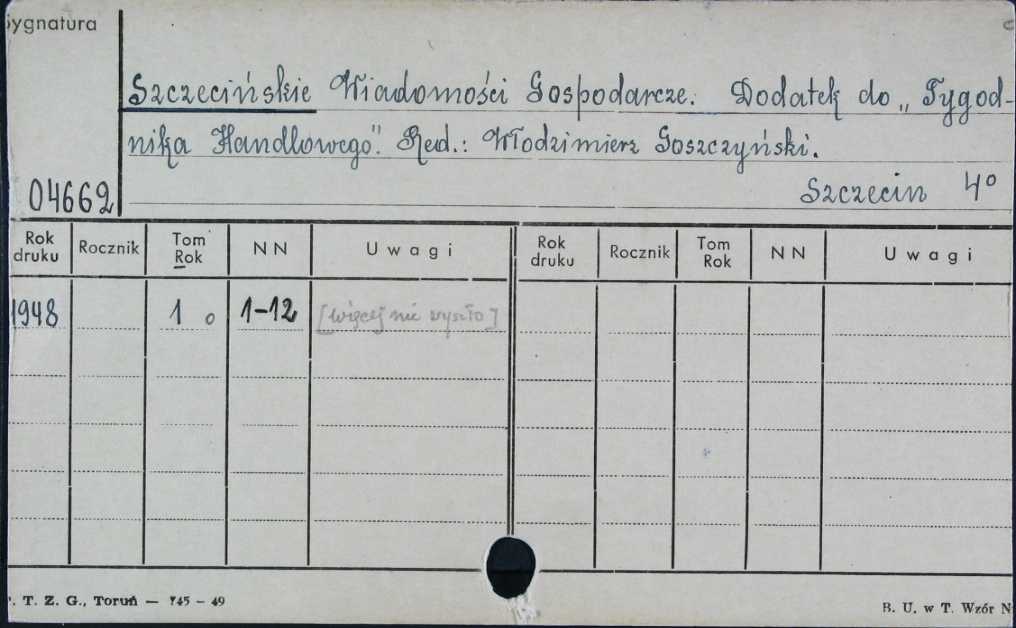 Sygnatura
Szczecińskie Wiadomości Gospodarcze. Dodatek do „Tygod-
nika Handlowego". Red.: Włodzimierz Goszczyński.
04662
Szczecin 4°
Rok druku Rocznik Tom Rok NN Uwagi Rok druku Rocznik Tom Rok NN Uwagi
1948 1 o 1-12 [więcej nie wyszło]
. T. Z. G., Toruń — 745 - 49
B. U. w T. Wzór N